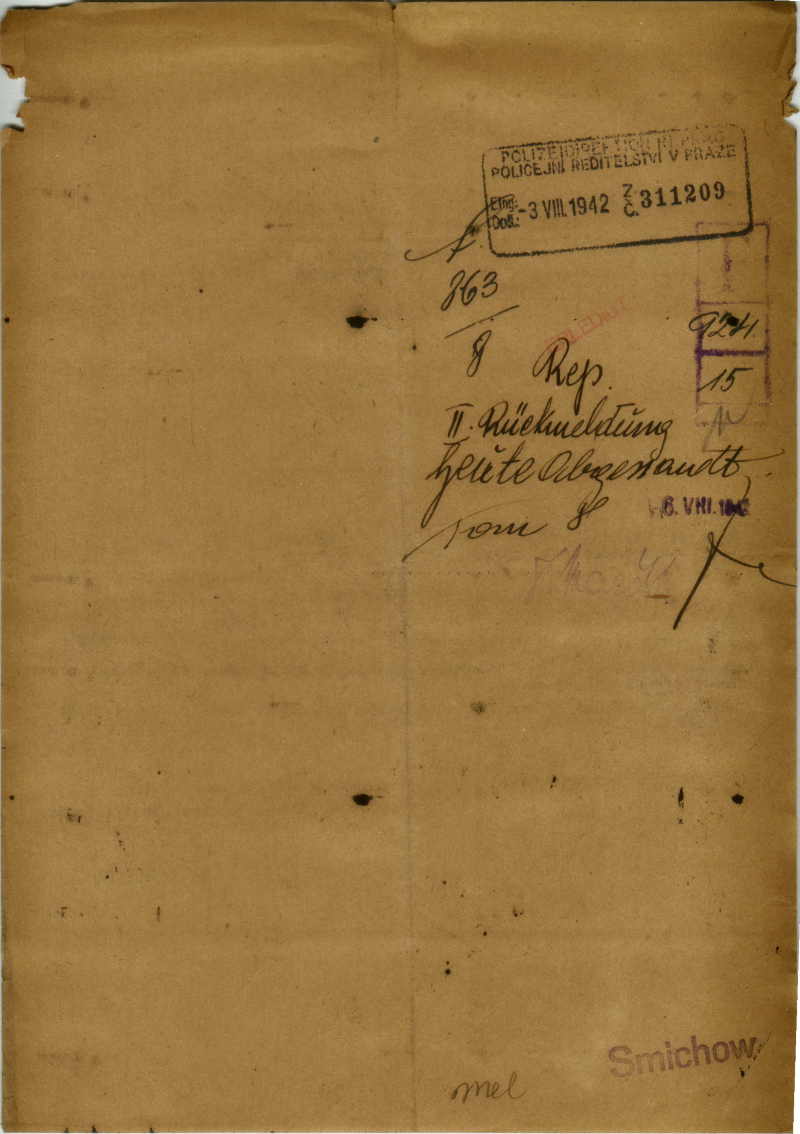 POLIZEIDIREKTION IN PRAG
POLICEJNÍ ŘEDITELSTVÍ V PRAZE
Eing.:
Došl.: -3 VIII. 1942 Z Č. 311209
863
8
924
15
Rep.
II. Rückmeldung
heute Abgesandt
6. VIII. 1942
8
Smichow
mel